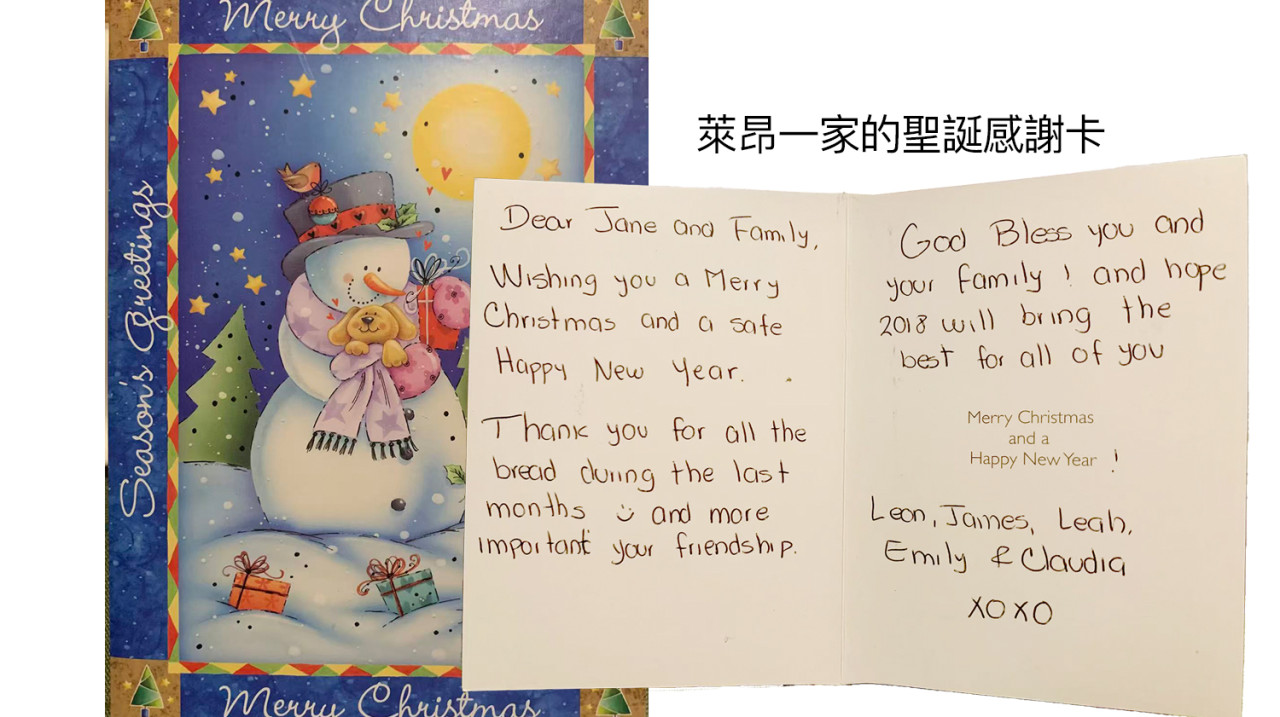 Merry Christmas
Season's Greetings
Merry Christmas
萊昂一家的聖誕感謝卡
Dear Jane and Family,
Wishing you a Merry
Christmas and a safe
Happy New Year.
Thank you for all the
bread during the last
months ت and more
important your friendship.
God Bless you and
your family! and hope
2018 will bring the
best for all of you
Merry Christmas
and a
Happy New Year !
Leon, James, Leah,
Emily & Claudia
XOXO